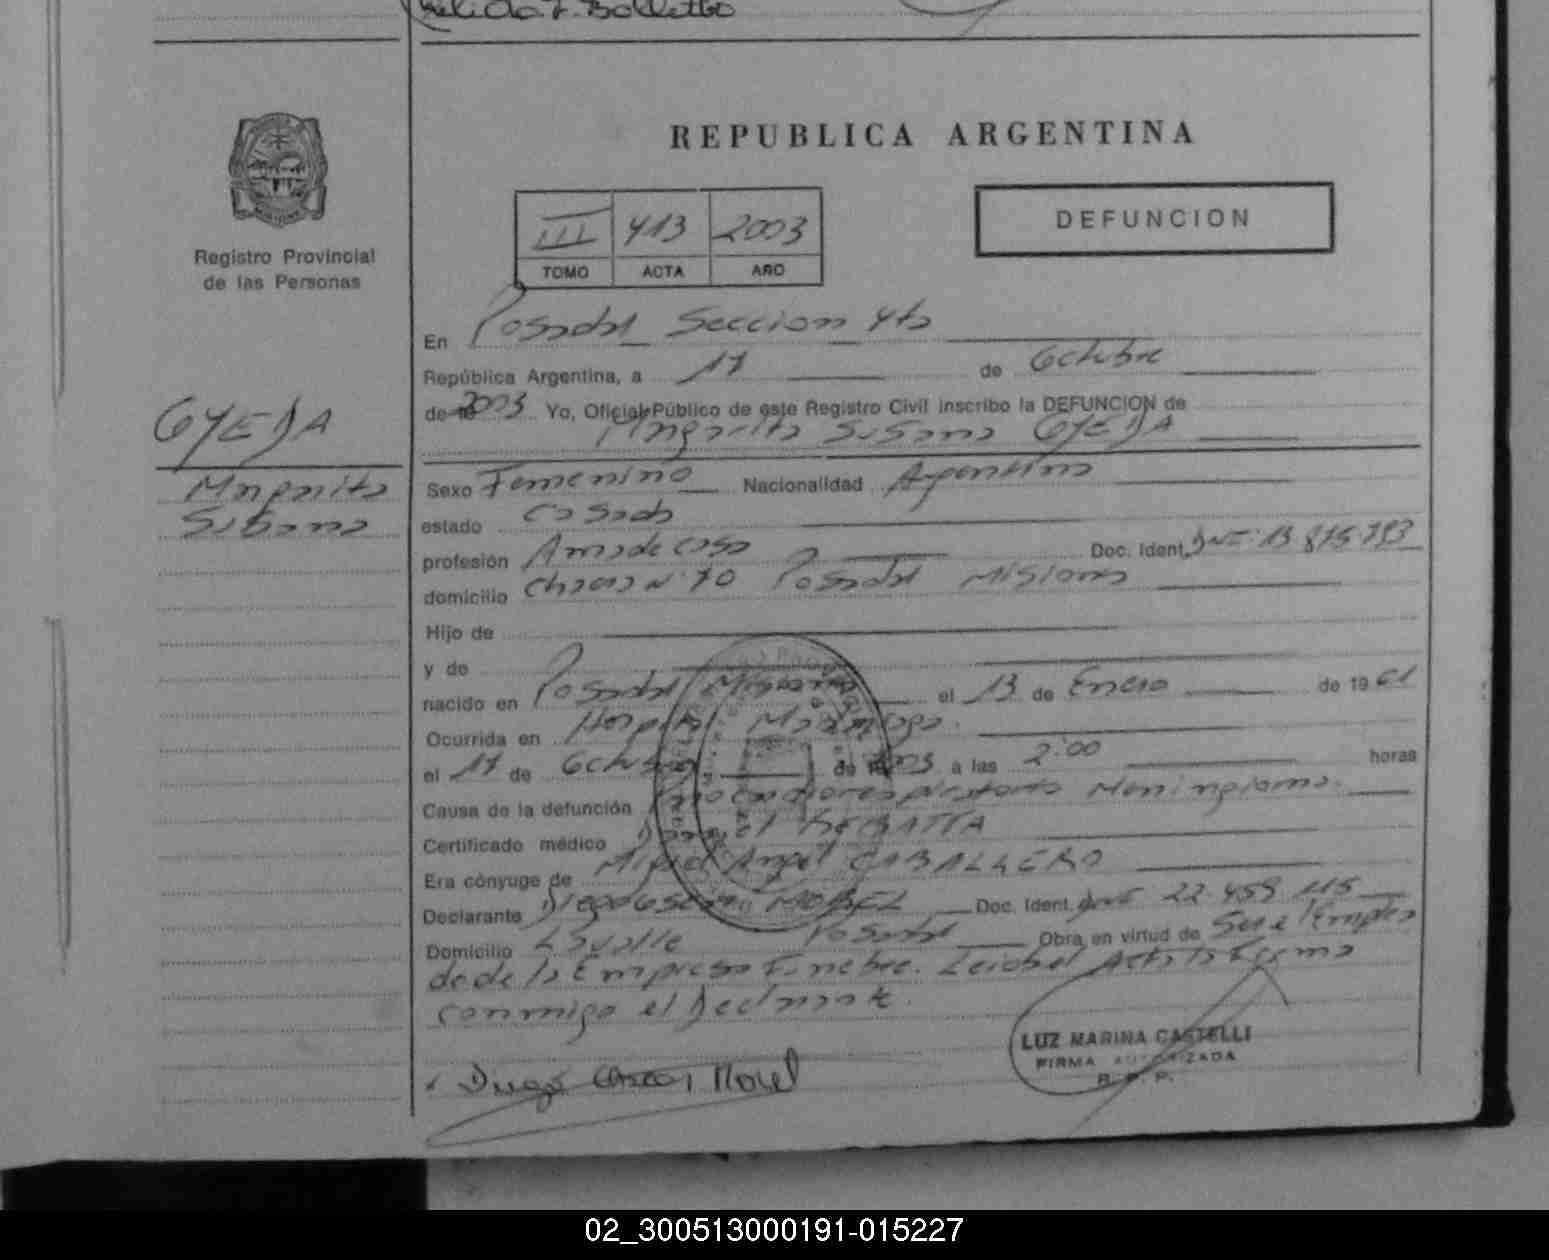 Nelida F. Bolletbo
REPUBLICA ARGENTINA
Registro Provincial
de las Personas
III 413 2003
TOMO ACTA AÑO
DEFUNCION
En Posadas Seccion 4ta
República Argentina, a 17 de Octubre
de 2003 Yo, Oficial Público de este Registro Civil inscribo la DEFUNCION de
Margarita Susana OYEDA
OYEDA
Margarita
Susana
Sexo Femenino Nacionalidad Argentina
estado Casada
profesión Ama de casa Doc. Ident. DNI: 13.875.793
domicilio Chacra Nº 70 Posadas Misiones
Hijo de
y de
nacido en Posadas Misiones el 13 de Enero de 1961
Ocurrida en Hospital Madariaga.
el 17 de Octubre de 2003 a las 2:00 horas
Causa de la defunción Paro cardiorespiratorio Meningioma.
Certificado médico
Era cónyuge de Miguel Angel CABALLERO
Declarante Diego Oscar MOREL Doc. Ident. DNI 22.459.115
Domicilio Lavalle Posadas Obra en virtud de Ser el Emplea
do de la Empresa Funebre. Leida el Acta la firma
conmigo el Declarante.
Diego Oscar Morel
LUZ MARINA CASTELLI
FIRMA AUTORIZADA
R. P. P.
02_300513000191-015227